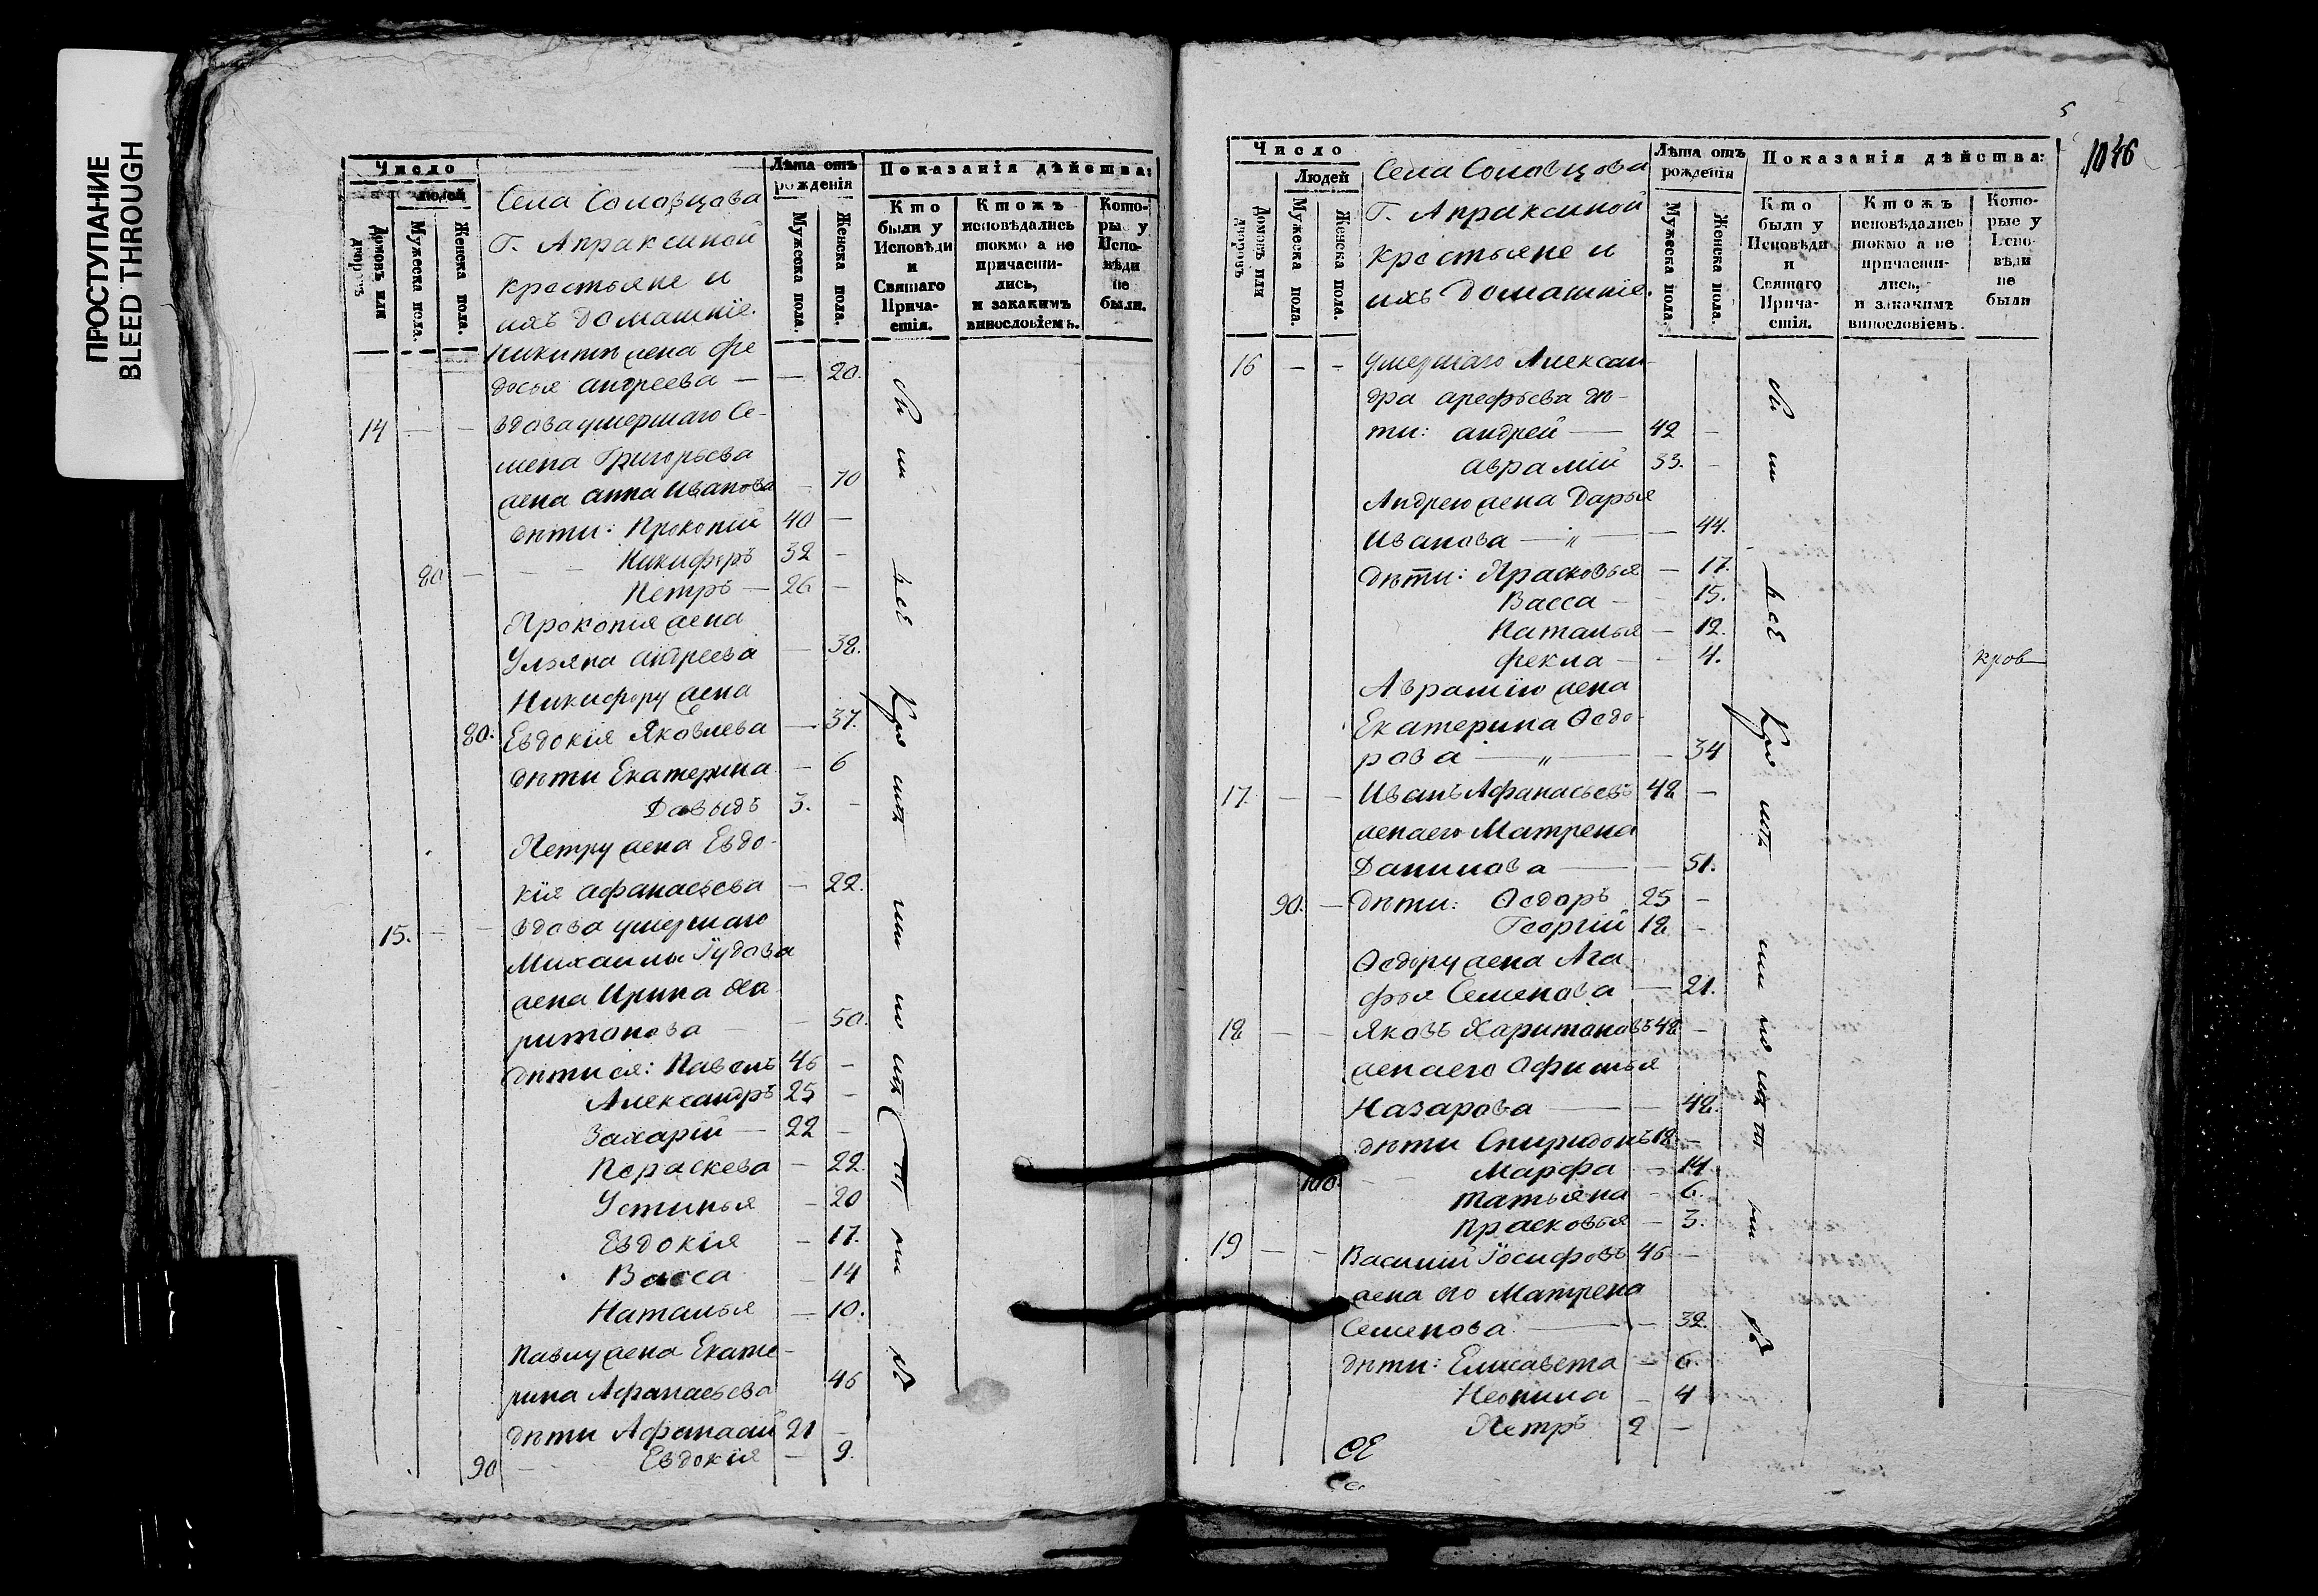 ПРОСТУПАНИЕ
BLEED THROUGH
Число
людей
Домовъ или дворовъ
Мужеска пола.
Женска пола.
Села Соловцова
Г. Апраксиной
крестьяне и
ихъ домашніе.
Лѣта отъ рожденія
Мужеска пола.
Женска пола.
Показанія дѣйства:
Кто были у Исповѣди и Святаго Прича-стія.
Ктожъ исповѣдались токмо а не причасти-лись, и закакимъ винословіемъ.
Кото-рые у Испо-вѣди не были.
Никитѣ жена Фе
досья Андреева — — 20.
14 — — вдова умершаго Се-
мена Григорьева
жена Анна Иванова — 70
дѣти: Прокопій 40 —
Никифоръ 32 —
80 — Петръ — 26 —
Прокопія жена
Ульяна Андреева — 38.
Никифору жена
80. Евдокія Яковлева — 37.
дѣти Екатерина — 6
Давыдъ 3. —
Петру жена Евдо-
кія Афанасьева — 22.
15. — — вдова умершаго
Михаилы Гудова
жена Ирина Ха
ритонова — — 50.
дѣти ея: Павелъ 46 —
Александръ 25 —
Захарій — 22 —
Пораскева — 22.
Устинья — 20
Евдокія — 17.
Васса — 14
Наталья — 10.
Павлу жена Екате-
рина Афанасьева 46
дѣти Афанасій 21 —
90 — Евдокія — 9.
5
1046
Число
Людей
Домовъ или дворовъ
Мужеска пола.
Женска пола.
Села Соловцова
Г. Апраксиной
крестьяне и
ихъ домашніе.
Лѣта отъ рожденія
Мужеска пола.
Женска пола.
Показанія дѣйства:
Кто были у Исповѣди и Святаго Прича-стія.
Ктожъ исповѣдались токмо а не причасти-лись, и закакимъ винословіемъ.
Кото-рые у Испо-вѣди не были
16 — — умершаго Алексан-
дра Арефьева дѣ-
ти: Андрей — 42 —
Аврамій 33. —
Андрею жена Дарья
Иванова — „ — — 44.
дѣти: Прасковья — 17.
Васса — — 15.
Наталья — 12.
Фекла — — 4.
Аврамію жена
Екатерина Ѳедо-
рова — „ — — 34
17. — — Иванъ Афанасьевъ 48 —
жена его Матрена
Данилова — — 51.
90. — дѣти: Ѳедоръ 25 —
Георгій 18 —
Ѳедору жена Ага
фья Семенова — 21.
18 — — Яковъ Харитоновъ 48 —
жена его Офимья
Назарова — — 48.
дѣти Спиридонъ 18. —
100. — — Марфа — 14
Татьяна — 6.
Прасковья — 3.
19 — — Василій Іосифовъ 46 —
жена его Матрена
Семенова — — 32.
дѣти: Елисавета — 6.
Неонила — 4
Петръ 2 —